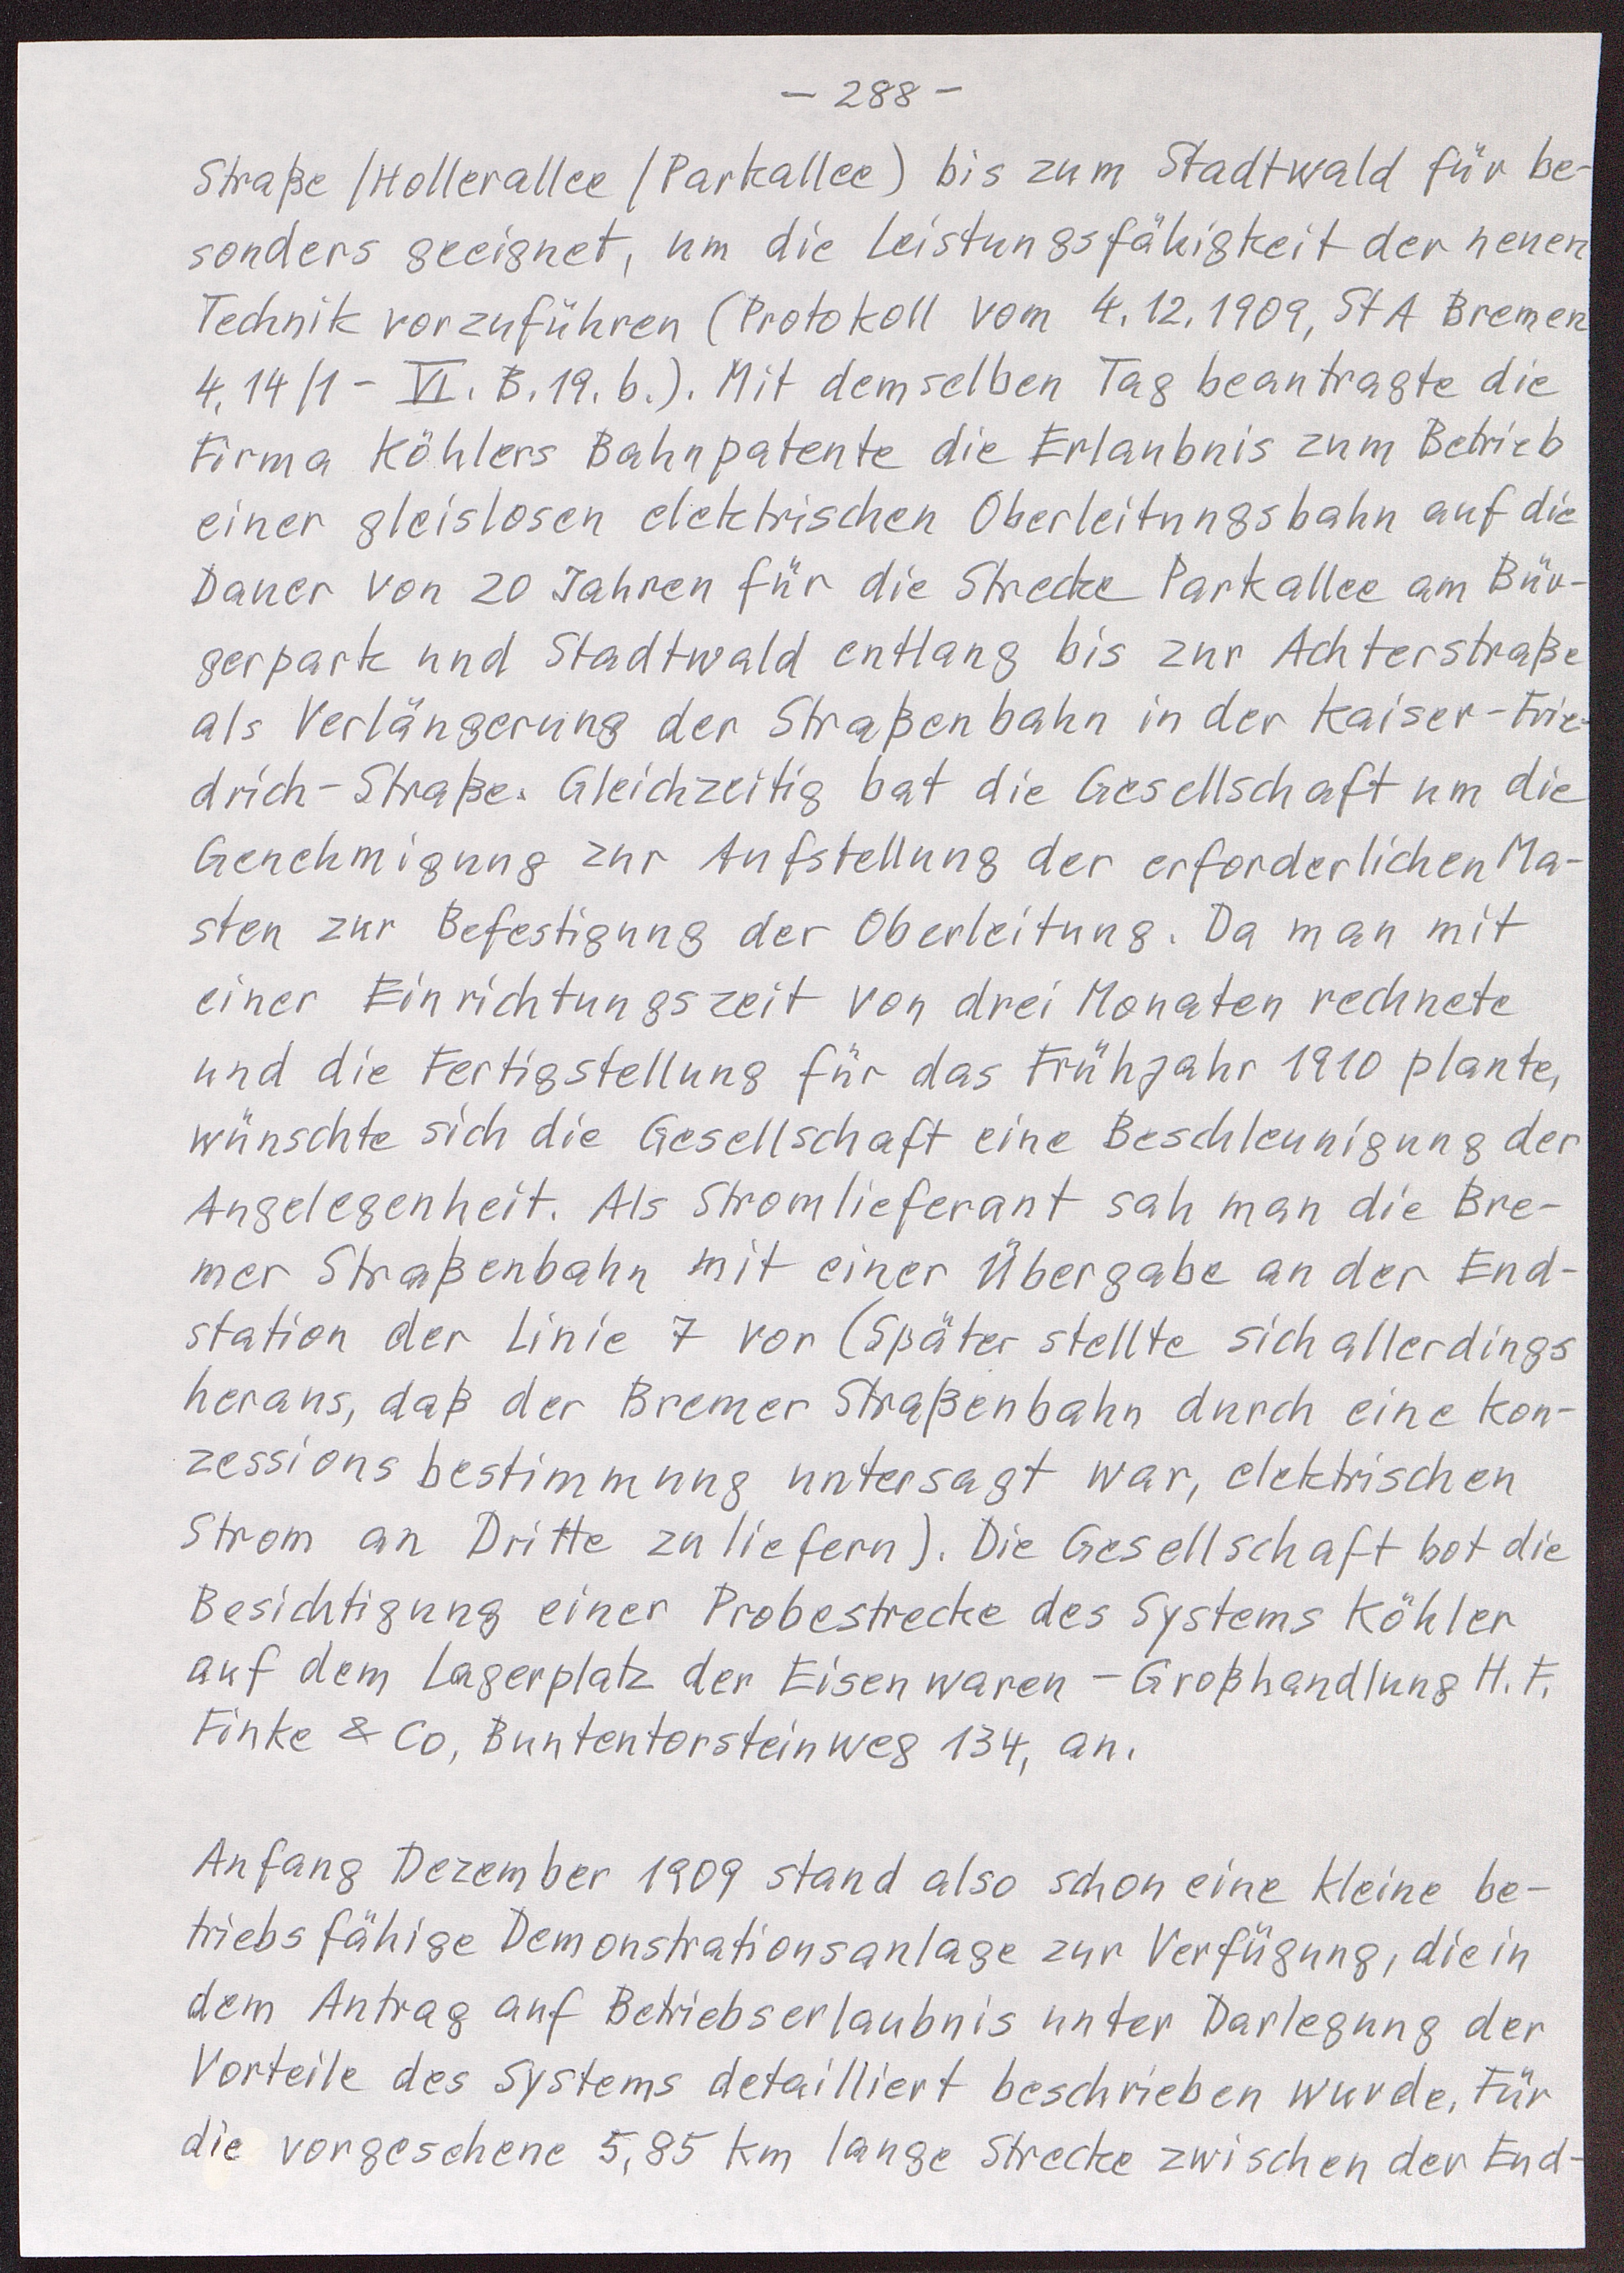 - 288 -
Straße/Hollerallee/Parkallee) bis zum Stadtwald für be-
sonders geeignet, um die Leistungsfähigkeit der neuen
Technik vorzuführen (Protokoll vom 4.12.1909, StA Bremen
4,14/1 - VI. B.19.b.). Mit demselben Tag beantragte die
Firma Köhlers Bahnpatente die Erlaubnis zum Betrieb
einer gleislosen elektrischen Oberleitungsbahn auf die
Dauer von 20 Jahren für die Strecke Parkallee am Bür-
gerpark und Stadtwald entlang bis zur Achterstraße
als Verlängerung der Straßenbahn in der Kaiser-Frie-
drich-Straße. Gleichzeitig bat die Gesellschaft um die
Genehmigung zur Aufstellung der erforderlichen Ma-
sten zur Befestigung der Oberleitung. Da man mit
einer Einrichtungszeit von drei Monaten rechnete
und die Fertigstellung für das Frühjahr 1910 plante,
wünschte sich die Gesellschaft eine Beschleunigung der
Angelegenheit. Als Stromlieferant sah man die Bre-
mer Straßenbahn mit einer Übergabe an der End-
station der Linie 7 vor (Später stellte sich allerdings
heraus, daß der Bremer Straßenbahn durch eine Kon-
zessionsbestimmung untersagt war, elektrischen
Strom an Dritte zu liefern). Die Gesellschaft bot die
Besichtigung einer Probestrecke des Systems Köhler
auf dem Lagerplatz der Eisenwaren-Großhandlung H.F.
Finke & Co, Buntentorsteinweg 134, an.
Anfang Dezember 1909 stand also schon eine kleine be-
triebsfähige Demonstrationsanlage zur Verfügung, die in
dem Antrag auf Betriebserlaubnis unter Darlegung der
Vorteile des Systems detailliert beschrieben wurde. Für
die vorgesehene 5,85 km lange Strecke zwischen der End-